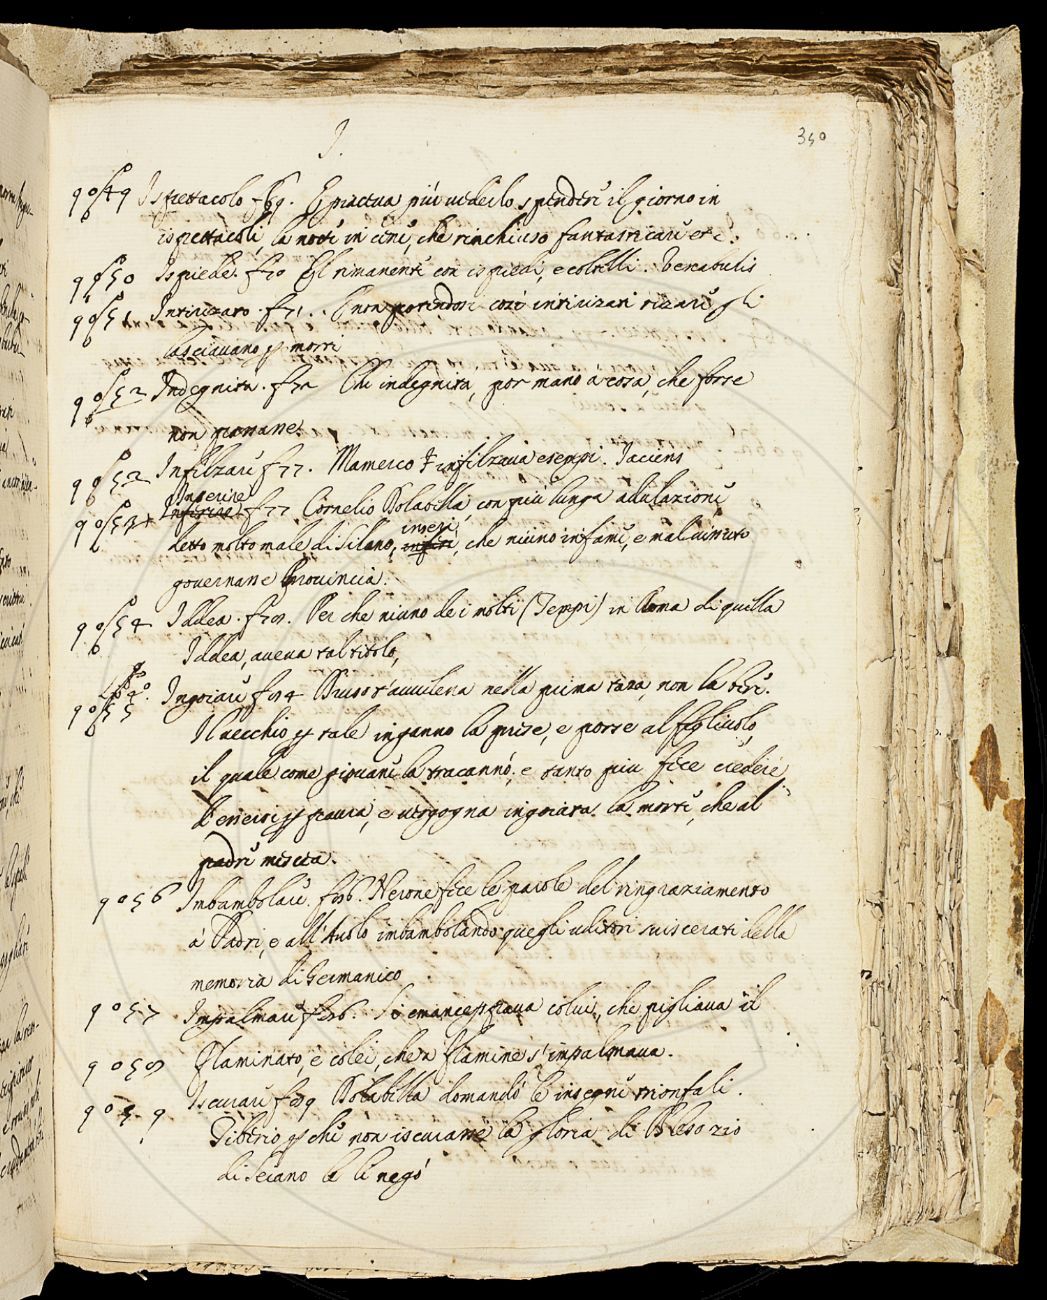 I.
350
9049 Ispettacolo f 69. E piaceva più vederlo spender il giorno in
ispettacoli, la notte in cene, che rinchiuso fantasticare etc.
9050 Ispiede. f 70 El rimanente con ispiedi, e coltelli. Verutis
9051 Intirizato. f 71. E non potendosi così intirizati rizare gli
lasciavano p morti
9052 Indegnità. f 72 Chi indegnità, por mano a cosa, che forse
non giovasse.
9052 Infilzare f 77. Mamerco infilzava esempi. Iaciens
Inserire
9053 f 77 Cornelio Dolabella, con più lunga adulazione
detto molto male di Silano, inserì, che niuno infame, e mal vivuto
governasse Provincia.
9054 Iddea. f 78. Per che niuno de i molti (Tempi) in Roma di quella
Iddea, aveva tal titolo,
9055 Ingoiare f 84 Druso t'avvelena nella prima taza, non la bere.
Il vecchio p tale inganno la prese, e porse al figliuolo,
il quale come giovane la tracannò; e tanto più fece credere
d'essersi p paura, e vergogna ingoiata la morte, che al
padre mesceta.
9056 Imbambolare. f 86. Nerone fece le parole del ringraziamento
a' Padri, e all'Avolo imbambolando quegli uditori sviscerati della
memoria di Germanico
9057 Impalmare f 86. Si emancippava colui, che pigliava il
9058 Flaminato, e colei, che a Flamine s'impalmava.
9059 Iscurare f 89 Dolabella domandò le insegne trionfali.
Tibèrio p che non iscurasse la gloria di Bleso zio
di Seiano le li negò